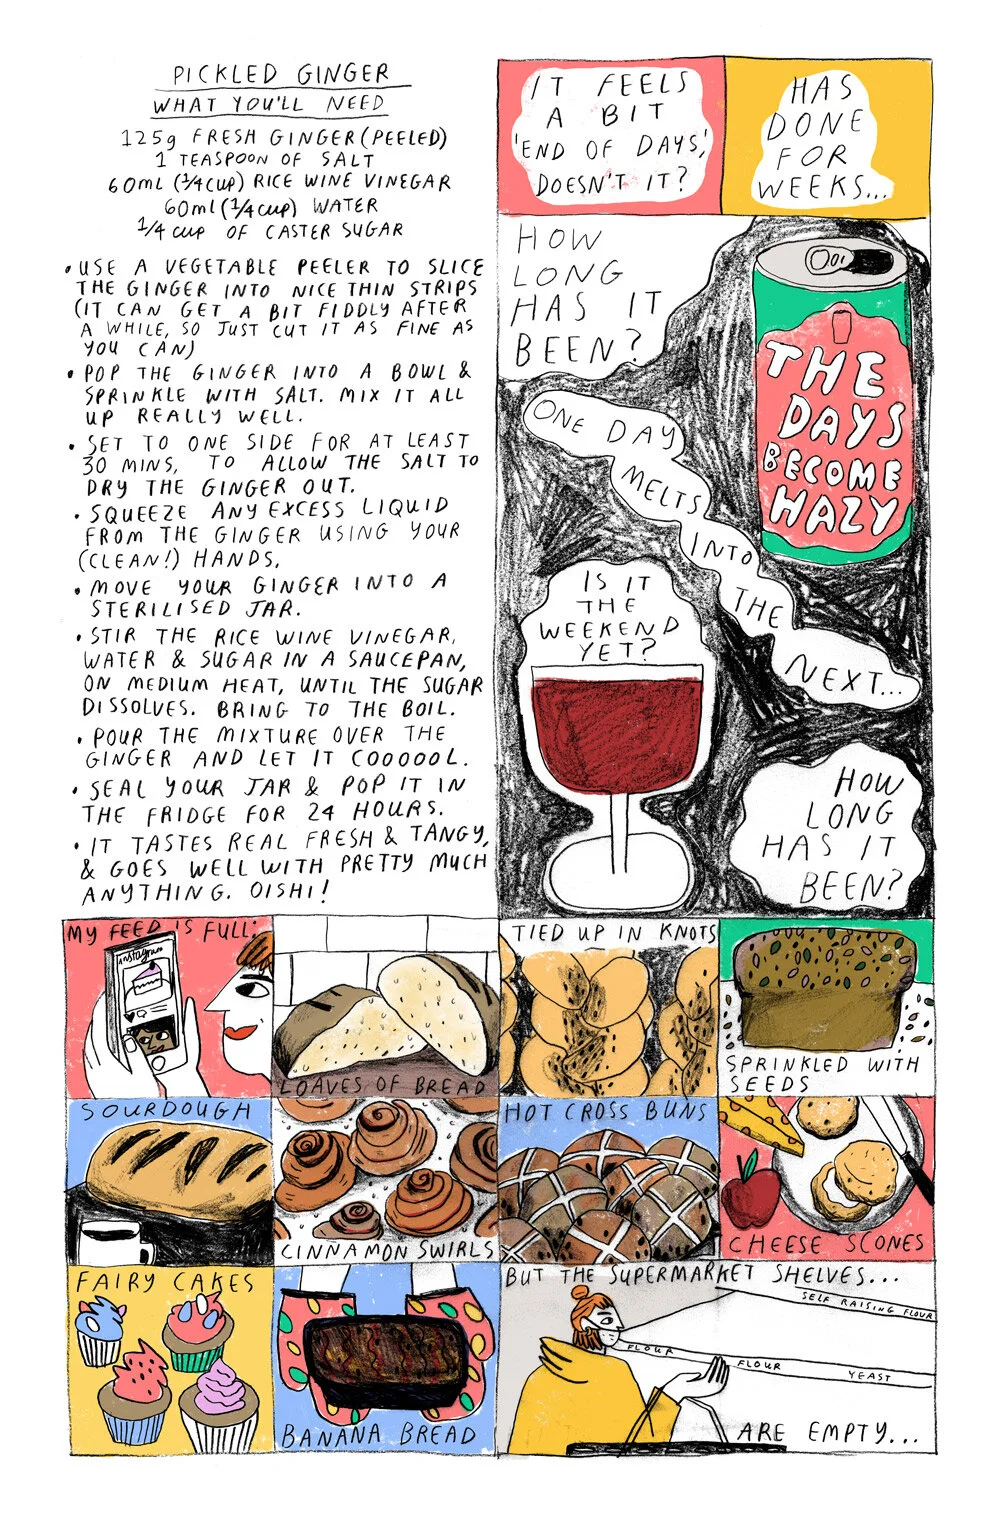 PICKLED GINGER
WHAT YOU'LL NEED
125g FRESH GINGER (PEELED)
1 TEASPOON OF SALT
60ml (1/4 cup) RICE WINE VINEGAR
60ml (1/4 cup) WATER
1/4 cup OF CASTER SUGAR
• USE A VEGETABLE PEELER TO SLICE
THE GINGER INTO NICE THIN STRIPS
(IT CAN GET A BIT FIDDLY AFTER
A WHILE, SO JUST CUT IT AS FINE AS
YOU CAN)
• POP THE GINGER INTO A BOWL &
SPRINKLE WITH SALT. MIX IT ALL
UP REALLY WELL.
• SET TO ONE SIDE FOR AT LEAST
30 MINS, TO ALLOW THE SALT TO
DRY THE GINGER OUT.
• SQUEEZE ANY EXCESS LIQUID
FROM THE GINGER USING YOUR
(CLEAN!) HANDS.
• MOVE YOUR GINGER INTO A
STERILISED JAR.
• STIR THE RICE WINE VINEGAR,
WATER & SUGAR IN A SAUCEPAN,
ON MEDIUM HEAT, UNTIL THE SUGAR
DISSOLVES. BRING TO THE BOIL.
• POUR THE MIXTURE OVER THE
GINGER AND LET IT COOOOOL.
• SEAL YOUR JAR & POP IT IN
THE FRIDGE FOR 24 HOURS.
• IT TASTES REAL FRESH & TANGY,
& GOES WELL WITH PRETTY MUCH
ANYTHING. OISHI!
IT FEELS
A BIT
'END OF DAYS',
DOESN'T IT?
HAS
DONE
FOR
WEEKS...
HOW
LONG
HAS IT
BEEN?
THE
DAYS
BECOME
HAZY
ONE DAY
MELTS
INTO
THE
NEXT...
IS IT
THE
WEEKEND
YET?
HOW
LONG
HAS IT
BEEN?
MY FEED IS FULL:
instagram
LOAVES OF BREAD
TIED UP IN KNOTS
SPRINKLED WITH
SEEDS
SOURDOUGH
CINNAMON SWIRLS
HOT CROSS BUNS
CHEESE SCONES
FAIRY CAKES
BANANA BREAD
BUT THE SUPERMARKET SHELVES...
SELF RAISING FLOUR
FLOUR
FLOUR
YEAST
ARE EMPTY...